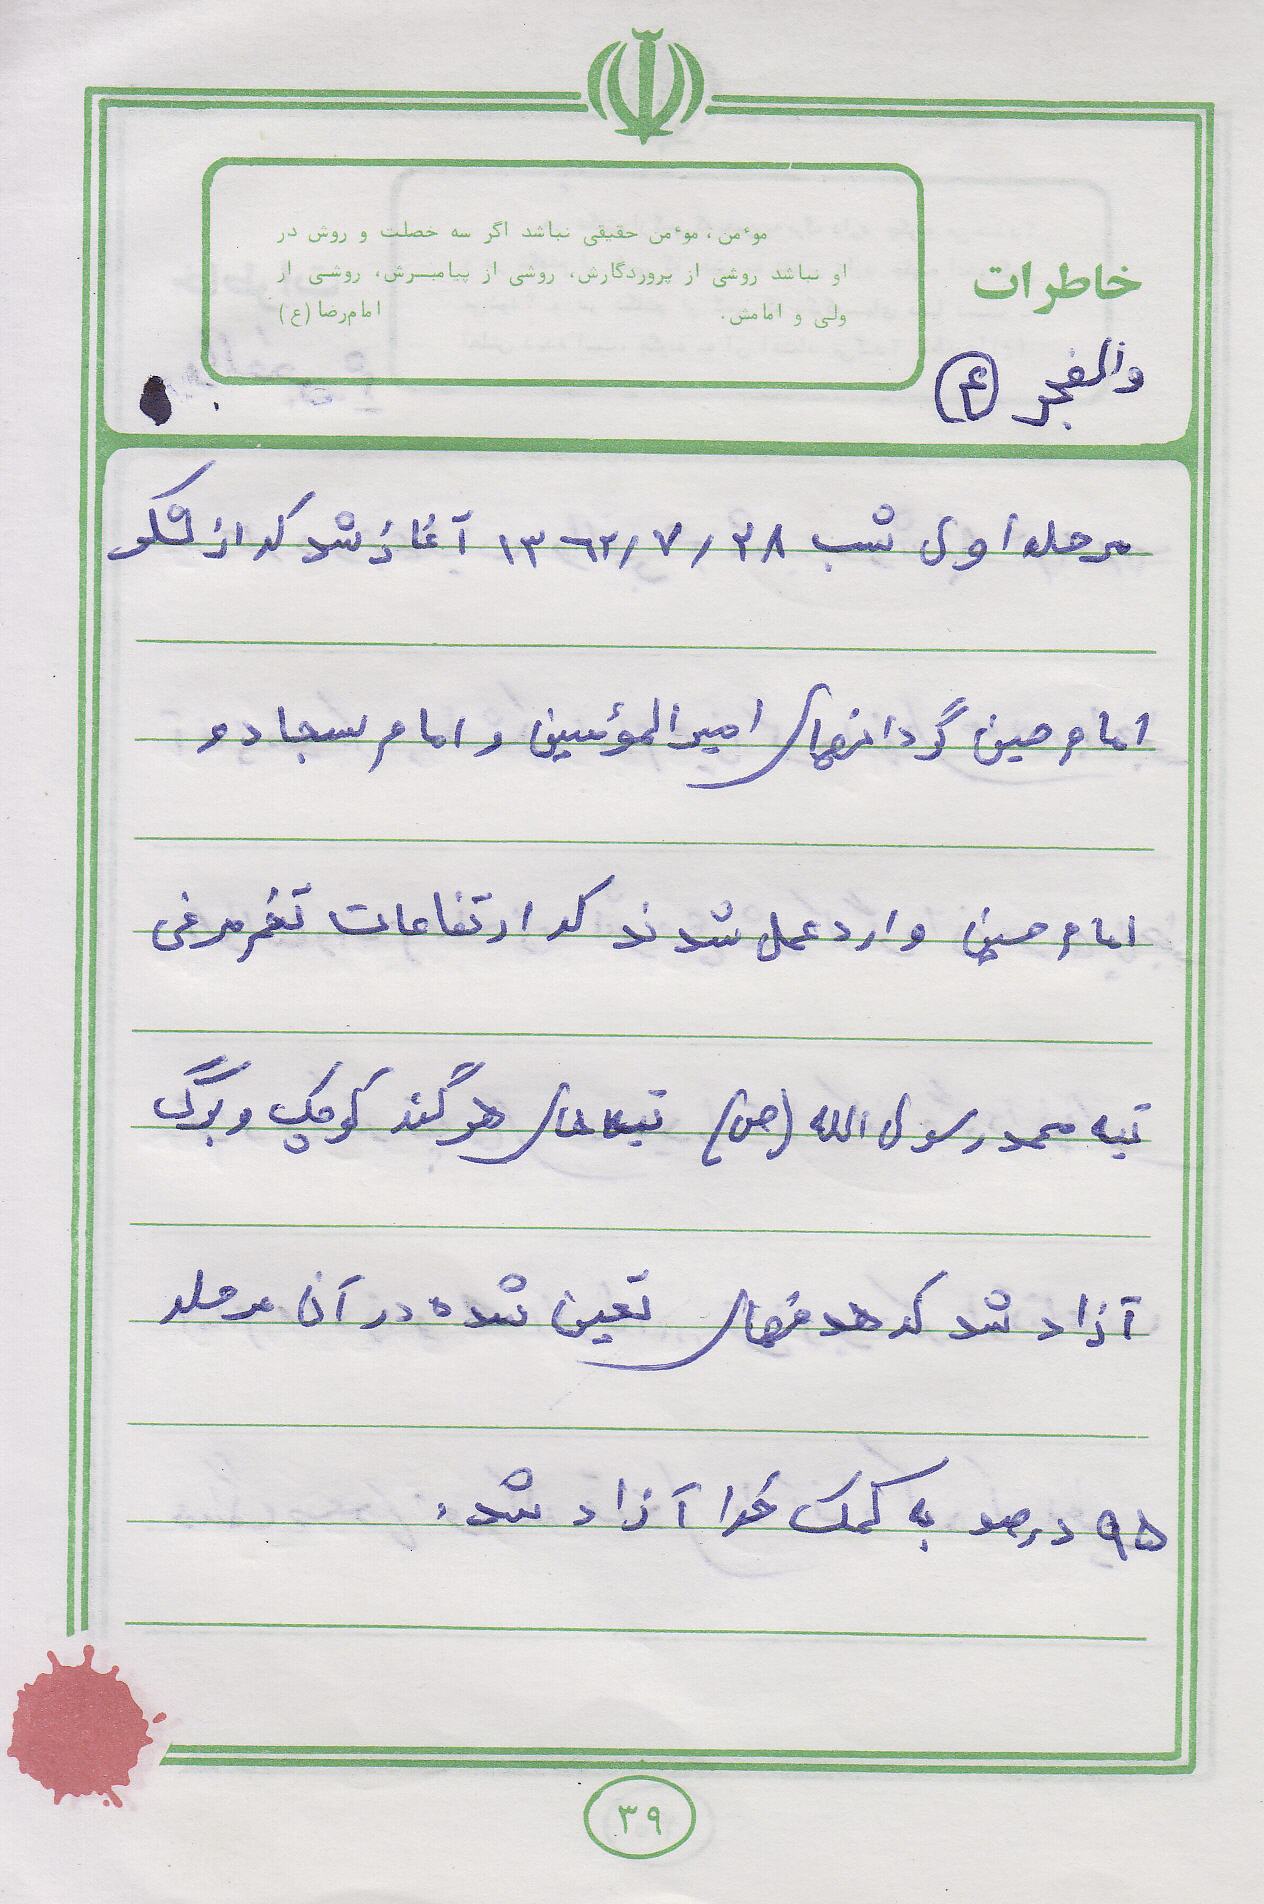 موٴمن، موٴمن حقیقی نباشد اگر سه خصلت و روش در
او نباشد روشی از پروردگارش، روشی از پیامبرش، روشی از
ولی و امامش. امام‌رضا (ع)
خاطرات
والفجر ۴
مرحله اول شب ۱۳۶۲/۷/۲۸ آغاز شد که از لشکر
امام حسین گردانهای امیرالمؤمنین و امام سجاد و
امام حسین وارد عمل شدند که ارتفاعات تخم مرغی
تپه محمد رسول الله (ص) تپه های هرگنه کوچک و بزرگ
آزاد شد که هدفهای تعین شده در آن مرحله
۹۵ درصد به کمک خدا آزاد شد.
۳۹